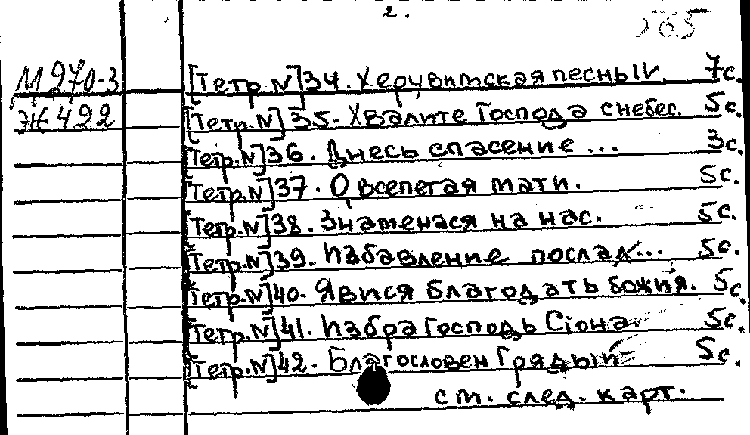 2.
565
М 270-3 [Тетр. №] 34. Херувимская песнь IV. 7с.
Ж 422 [Тетр. №] 35. Хвалите Господа с небес. 5с.
[Тетр. №] 36. Днесь спасение ... 3с.
[Тетр. №] 37. О, всепетая мати. 5с.
[Тетр. №] 38. Знаменася на нас. 5с.
[Тетр. №] 39. Избавление послал... 5с.
[Тетр. №] 40. Явися благодать божия. 5с.
[Тетр. №] 41. Избра Господь Сiона 5с.
[Тетр. №] 42. Благословен Грядый 5с.
см. след. карт.